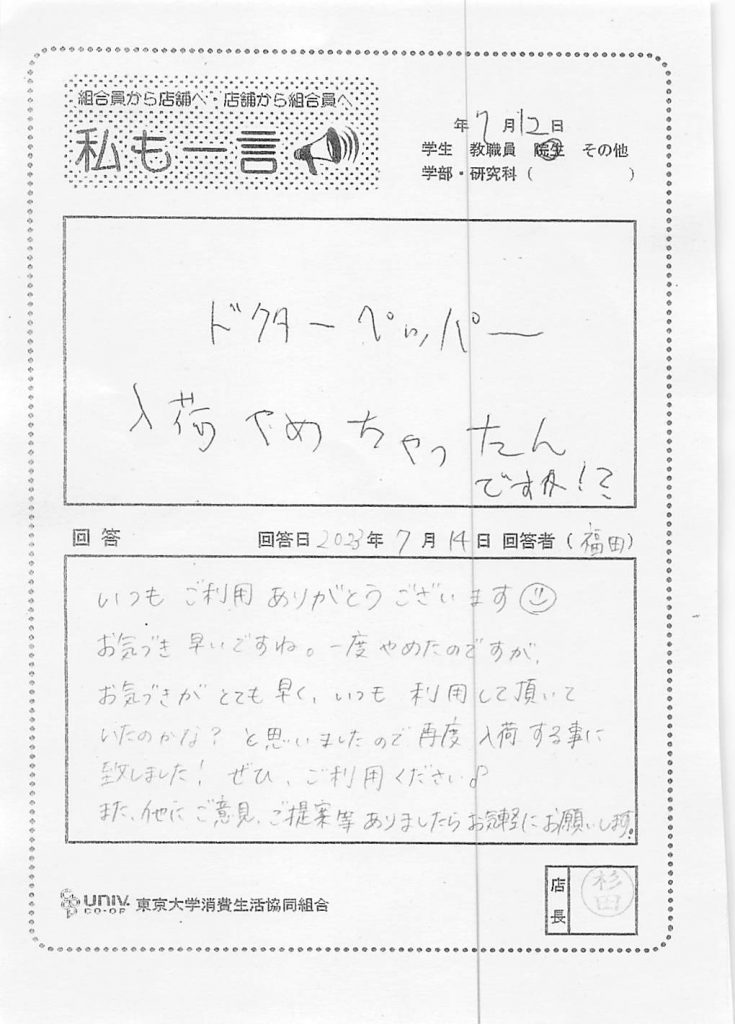 組合員から店舗へ・店舗から組合員へ
私も一言
年 7月12日
学生 教職員 院生 その他
学部・研究科( )
ドクターペッパー
入荷やめちゃったん
ですか!?
回答 回答日 2023年 7月 14日 回答者(福田)
いつも ご利用 ありがとう ございます
お気づき 早いですね。一度やめたのですが、
お気づきが とても 早く、いつも 利用して頂いて
いたのかな? と思いましたので 再度 入荷する事に
致しました! ぜひ、ご利用ください♪
また、他に ご意見、ご提案等 ありましたらお気軽にお願いします!
UNIV. CO-OP 東京大学消費生活協同組合
店長 杉田